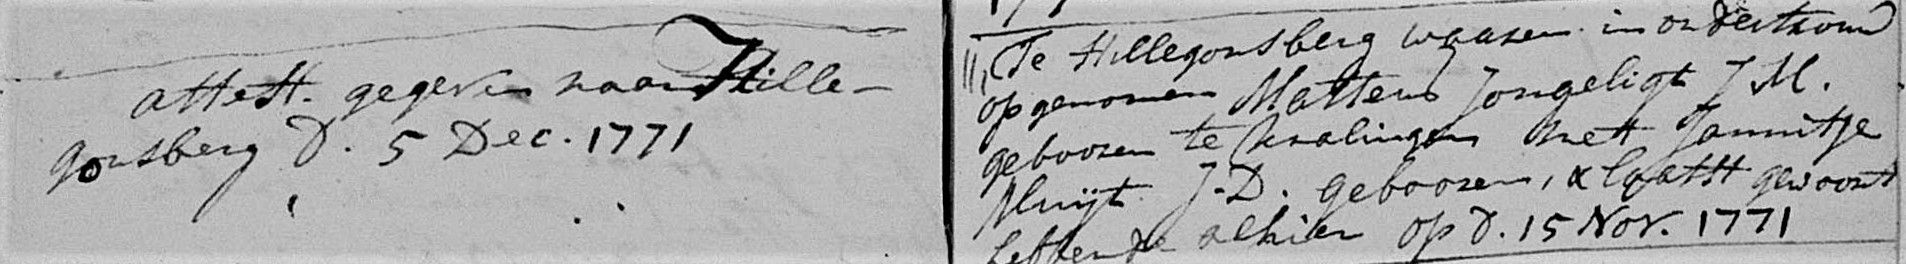 attest. gegeven naar Hille-
gonsberg D. 5 Dec. 1771
11, Te Hillegonsberg waaren in ondertrouw
opgenomen Jongeligt J M.
geboozen te Kralingen met Jannitje
J. D. geboozen, & laatst gewoont
hebbende alhier op D. 15 Nov. 1771